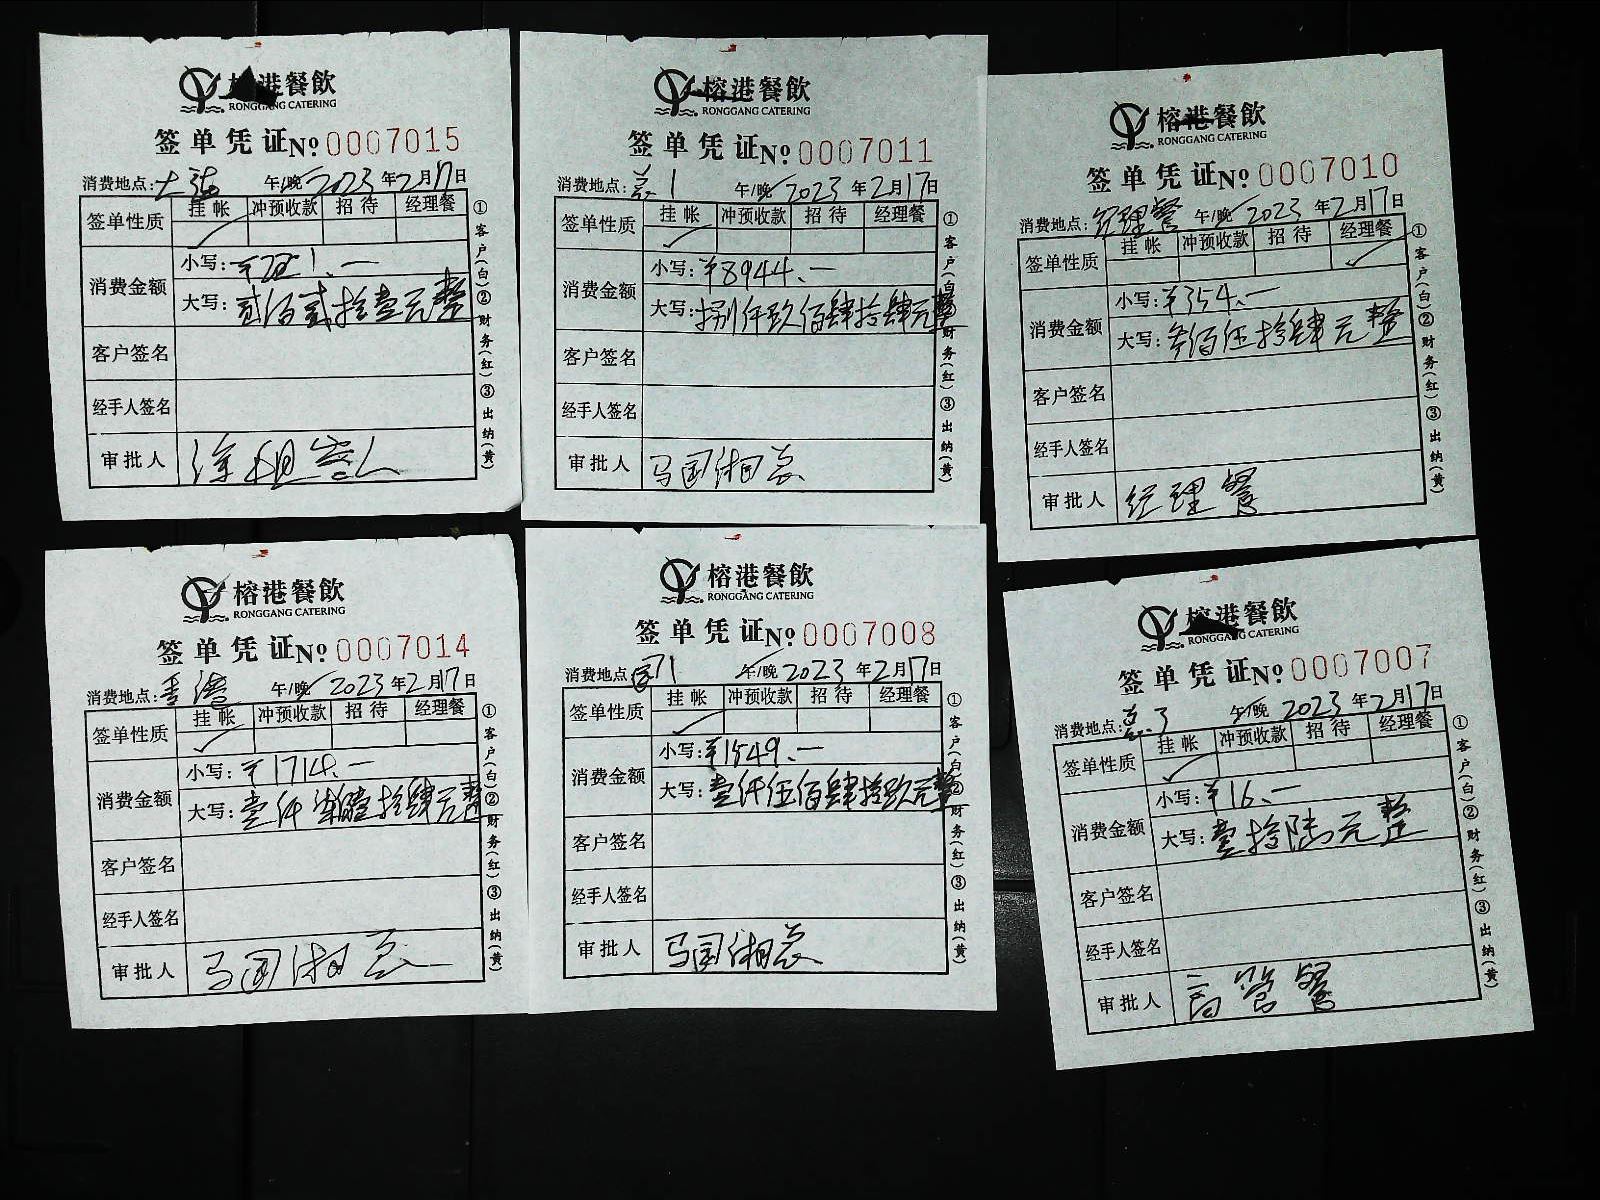 榕港餐飲
RONGGANG CATERING
签单凭证 No 0007015
消费地点: 午/晚 2023年2月17日
签单性质 挂帐 冲预收款 招待 经理餐
✓
消费金额 小写:¥221.—
大写:贰佰贰拾壹元整
客户签名
经手人签名
审批人 涂姐客人
①客户(白)②财务(红)③出纳(黄)
榕港餐飲
RONGGANG CATERING
签单凭证 No 0007011
消费地点: 1 午/晚 2023年2月17日
签单性质 挂帐 冲预收款 招待 经理餐
✓
消费金额 小写:¥8944.—
大写:捌仟玖佰肆拾肆元整
客户签名
经手人签名
审批人 马国湘总
①客户(白)②财务(红)③出纳(黄)
榕港餐飲
RONGGANG CATERING
签单凭证 No 0007010
消费地点:经理餐 午/晚 2023年2月17日
签单性质 挂帐 冲预收款 招待 经理餐
✓
消费金额 小写:¥354.—
大写:叁佰伍拾肆元整
客户签名
经手人签名
审批人 经理餐
①客户(白)②财务(红)③出纳(黄)
榕港餐飲
RONGGANG CATERING
签单凭证 No 0007014
消费地点:香港 午/晚 2023年2月17日
签单性质 挂帐 冲预收款 招待 经理餐
✓
消费金额 小写:¥1714.—
大写:壹仟柒 拾肆元整
客户签名
经手人签名
审批人 马国湘总
①客户(白)②财务(红)③出纳(黄)
榕港餐飲
RONGGANG CATERING
签单凭证 No 0007008
消费地点: 午/晚 2023年2月17日
签单性质 挂帐 冲预收款 招待 经理餐
✓
消费金额 小写:¥1549.—
大写:壹仟伍佰肆拾玖元整
客户签名
经手人签名
审批人 马国湘总
①客户(白)②财务(红)③出纳(黄)
榕港餐飲
RONGGANG CATERING
签单凭证 No 0007007
消费地点: 3 午/晚 2023年2月17日
签单性质 挂帐 冲预收款 招待 经理餐
✓
消费金额 小写:¥16.—
大写:壹拾陆元整
客户签名
经手人签名
审批人 高管餐
①客户(白)②财务(红)③出纳(黄)